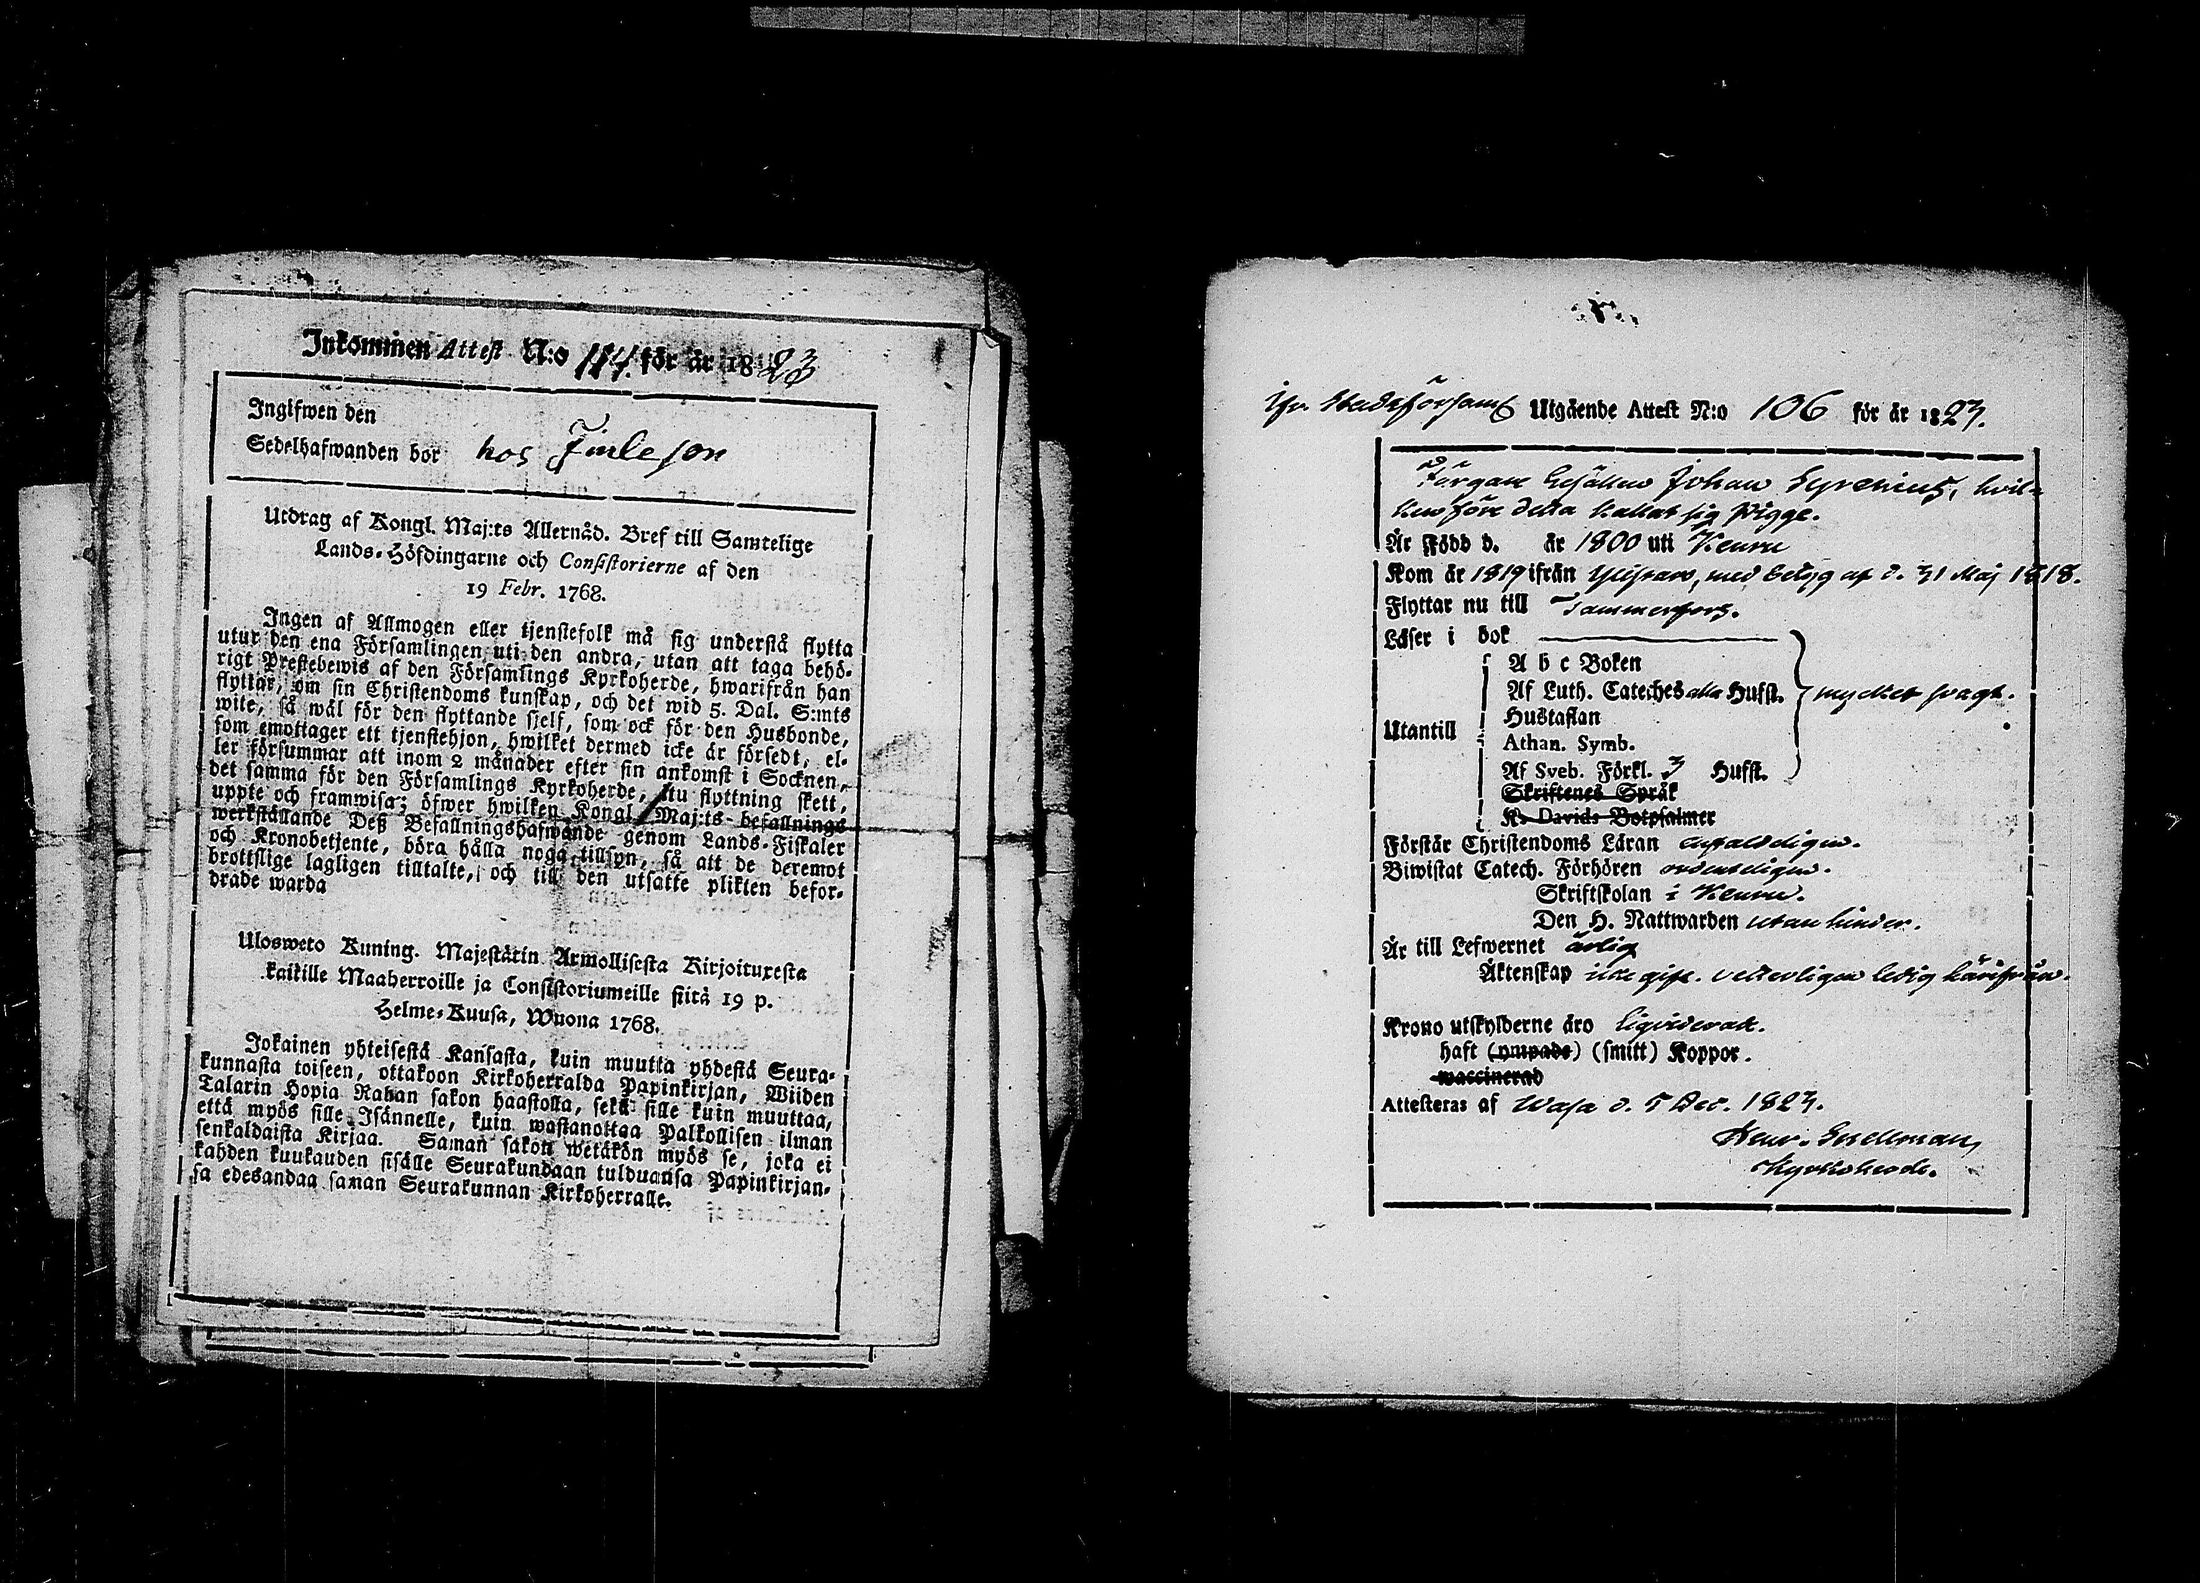 Inkommen Attest N:o 114. för år 1823
Ingifwen den
Sedelhafwanden bor hos Finleson
Utdrag af Kongl. Maj:ts Allernåd. Bref till Samtelige
Lands-Höfdingarne och Consistorierne af den
19 Febr. 1768.
Ingen af Allmogen eller tjenstefolk må sig understå flytta
utur den ena Församlingen uti den andra, utan att taga behö-
rigt Prestebewis af den Församlings Kyrkoherde, hwarifrån han
flyttar, om sin Christendoms kunskap, och det wid 5. Dal. S:mts
wite, så wäl för den flyttande sjelf, som ock för den Husbonde,
som emottager ett tjenstehjon, hwilket dermed icke är försedt, el-
ler försummar att inom 2 månader efter sin ankomst i Socknen,
det samma för den Församlings Kyrkoherde, itu flyttning skett,
uppte och framwisa; öfwer hwilken Kongl. Maj:ts befallnings
werkställande Deß Befallningshafwande genom Lands-Fiskaler
och Kronobetjente, böra hålla noga tillsyn, så att de deremot
brottslige lagligen tilltalte, och till den utsatte plikten befor-
drade warda
Ulosweto Kuning. Majestätin Armollisesta Kirjoituxesta
kaikille Maaherroille ja Consistoriumeille siitä 19 p.
Helme-Kuusa, Wuona 1768.
Jokainen yhteisestä Kansasta, kuin muutta yhdestä Seura-
kunnasta toiseen, ottakoon Kirkoherralda Papinkirjan, Wiiden
Talarin Hopia Rahan sakon haastolla, sekä sille kuin muuttaa,
että myös sille Isännelle, kuin wastanottaa Palkollisen ilman
senkaldaista Kirjaa. Saman sakon wetäkön myös se, joka ei
kahden kuukauden sisälle Seurakundaan tulduansa Papinkirjan-
sa edesandaa saman Seurakunnan Kirkoherralle.
Utgående Attest N:o 106 för år 1823.
Färgare Gesällen Johan Gyrenius, hvil-
ken före detta kallat sig Pigge.
Är Född d. år 1800 uti Keuru
Kom år 1819 ifrån Ylistaro, med betyg af d. 31 Maj 1818.
Flyttar nu till Tammerfors.
Läser i bok
A b c Boken
Af Luth. Cateches alla Hufst. mycket svagt.
Hustaflan
Utantill
Athan. Symb.
Af Sveb. Förkl. 3 Hufst.
Skriftenes Språk
K. Davids Botpsalmer
Förstår Christendoms Läran enfaldeligen.
Biwistat Catech. Förhören ordenteligen.
Skriftskolan i Keuru.
Den H. Nattwarden utan hinder.
Är till Lefwernet ärlig
Äktenskap icke gift. vetterligen ledig härifrån.
Krono utskylderne äro liqviderade.
haft (ympade) (smitt) Koppor.
waccinerad
Attesteras af Wasa d. 5 Dec. 1823.
Henr. Snellman,
Kyrkoherde.